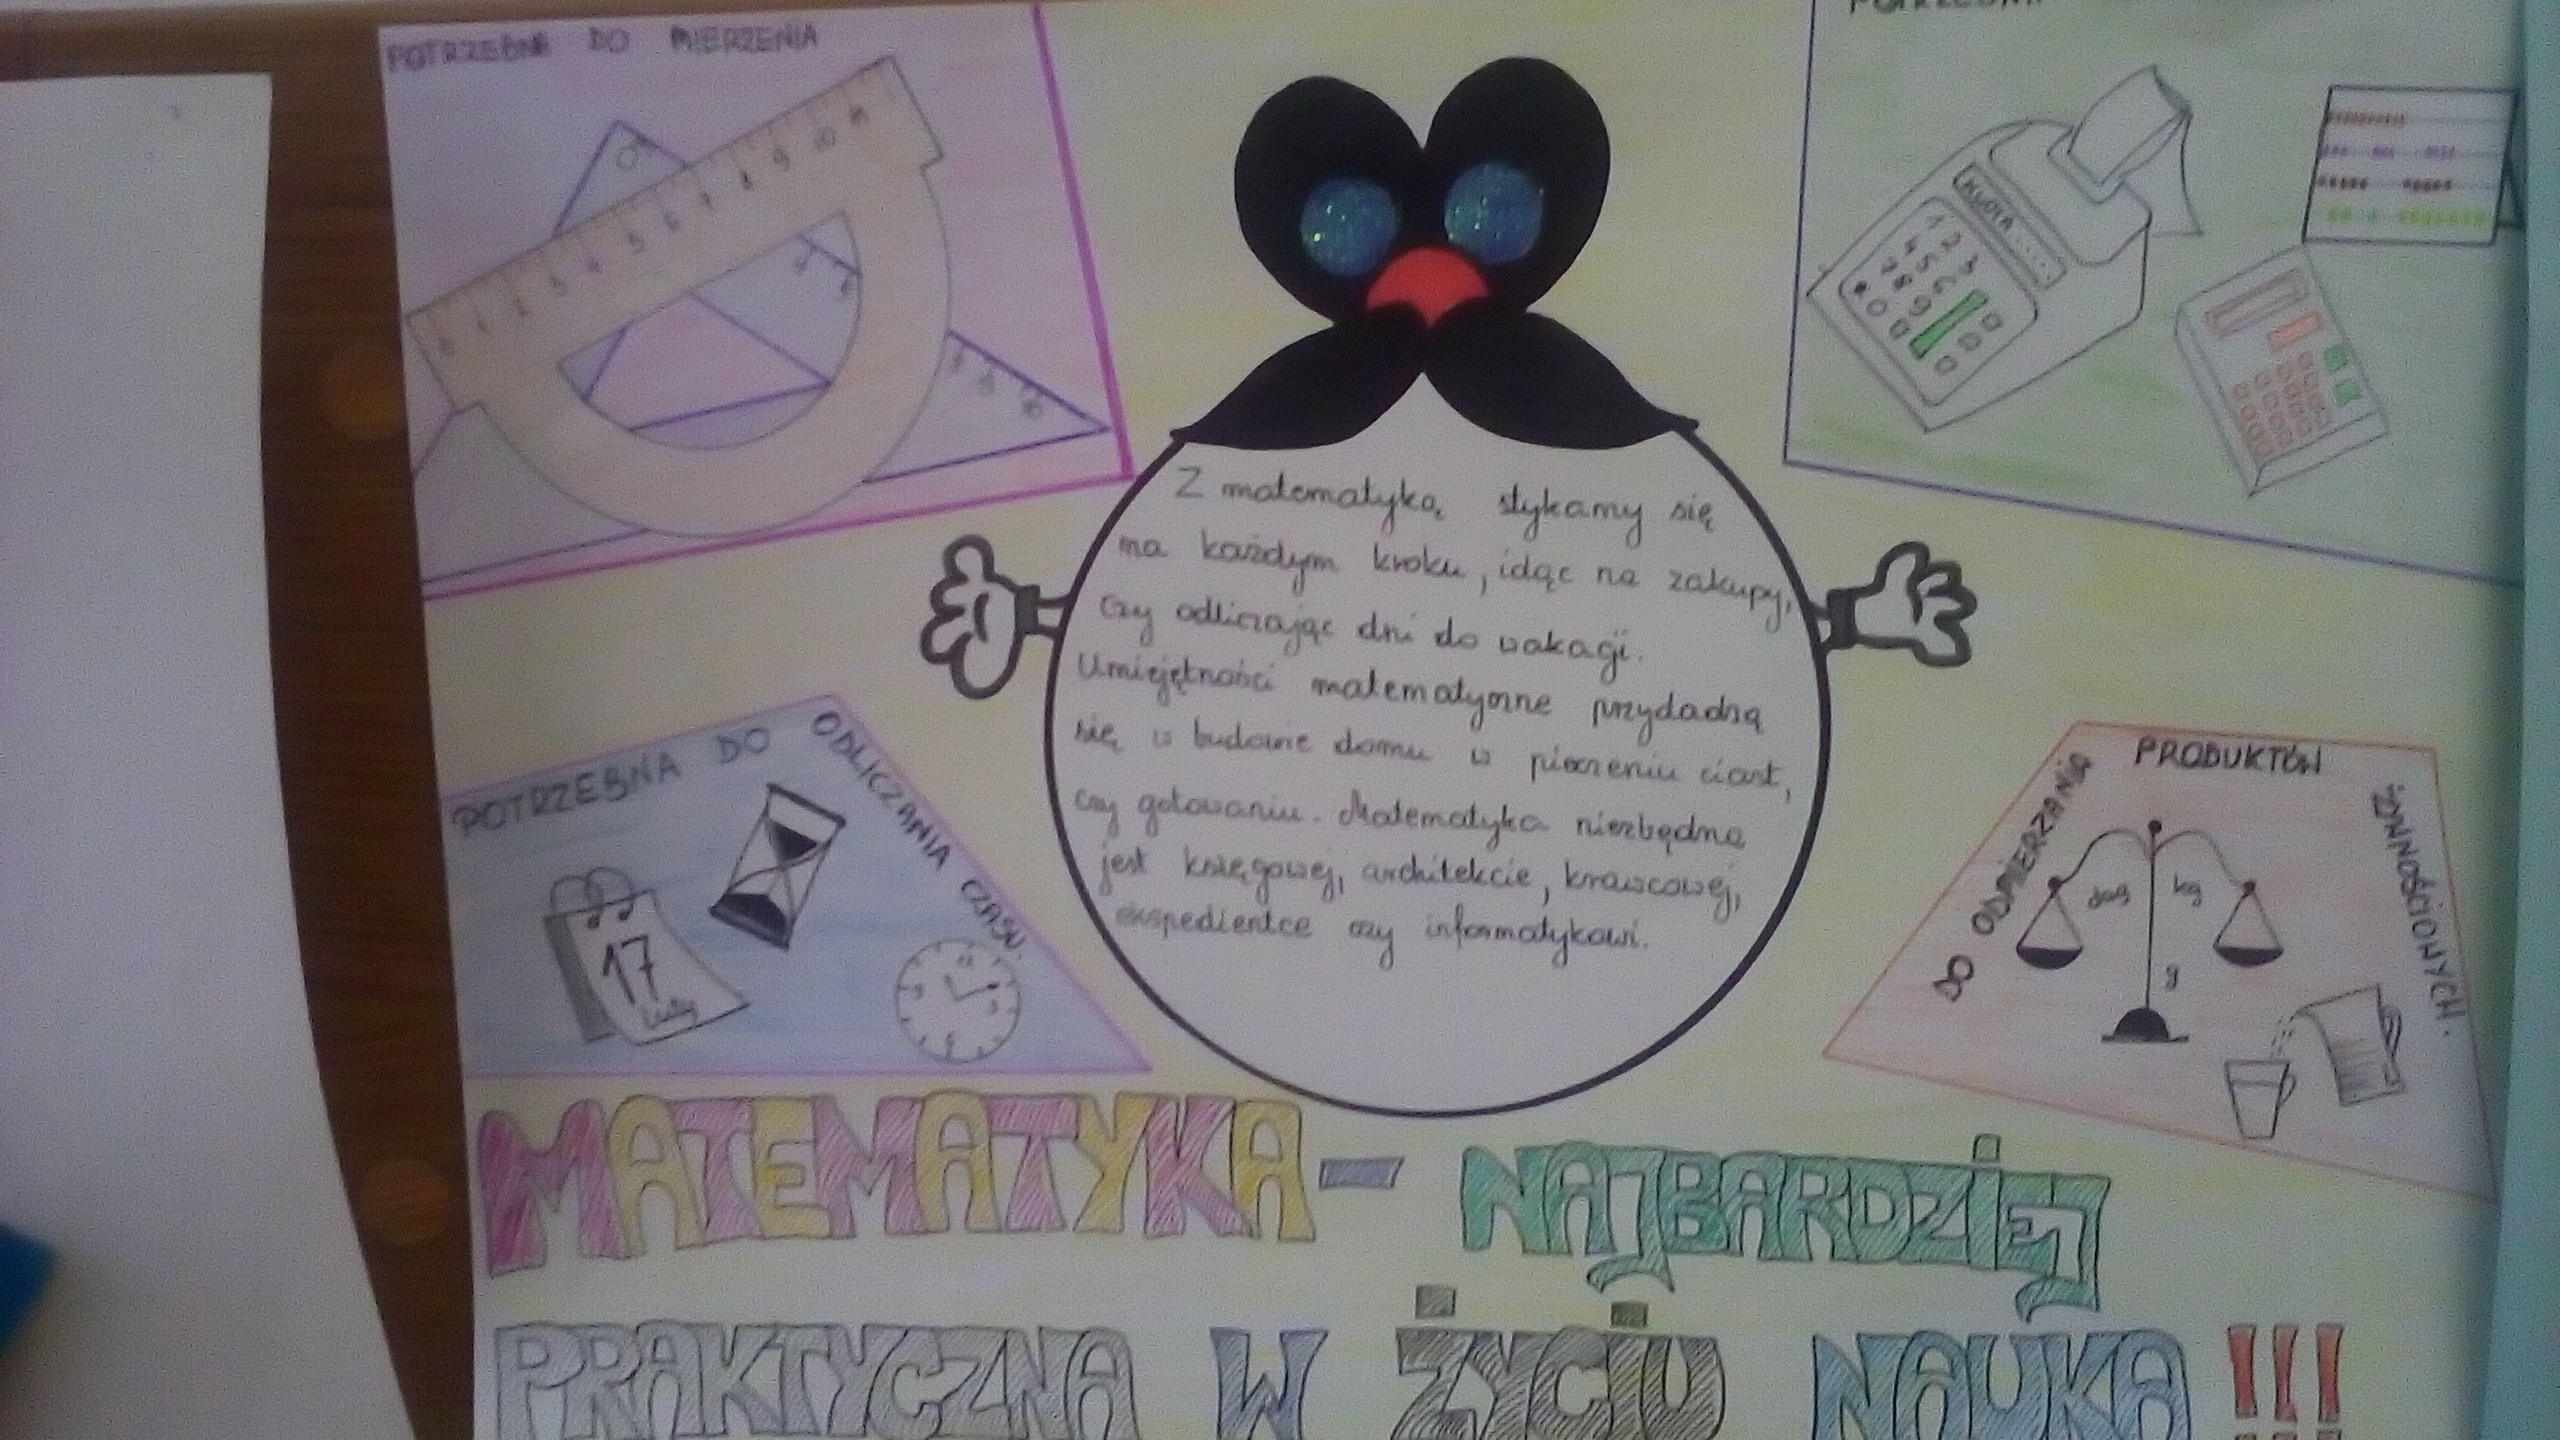 POTRZEBNA DO MIERZENIA
0 1 2 3 4 5 6 7 8 9 10
KWOTA....
1 2 3
4 5 6
7 8 9
* 0
Z matematyką stykamy się
na każdym kroku, idąc na zakupy,
czy odliczając dni do wakacji.
Umiejętności matematyczne przydadzą
się w budowie domu w pieczeniu ciast,
czy gotowaniu. Matematyka niezbędna
jest księgowej, architekcie, krawcowej,
ekspedientce czy informatykowi.
POTRZEBNA DO ODLICZANIA CZASU.
17
Luty
12
3
6
9
DO ODMIERZANIA PRODUKTÓW ŻYWNOŚCIOWYCH.
dag kg
g
MATEMATYKA - NAJBARDZIEJ
PRAKTYCZNA W ŻYCIU NAUKA !!!